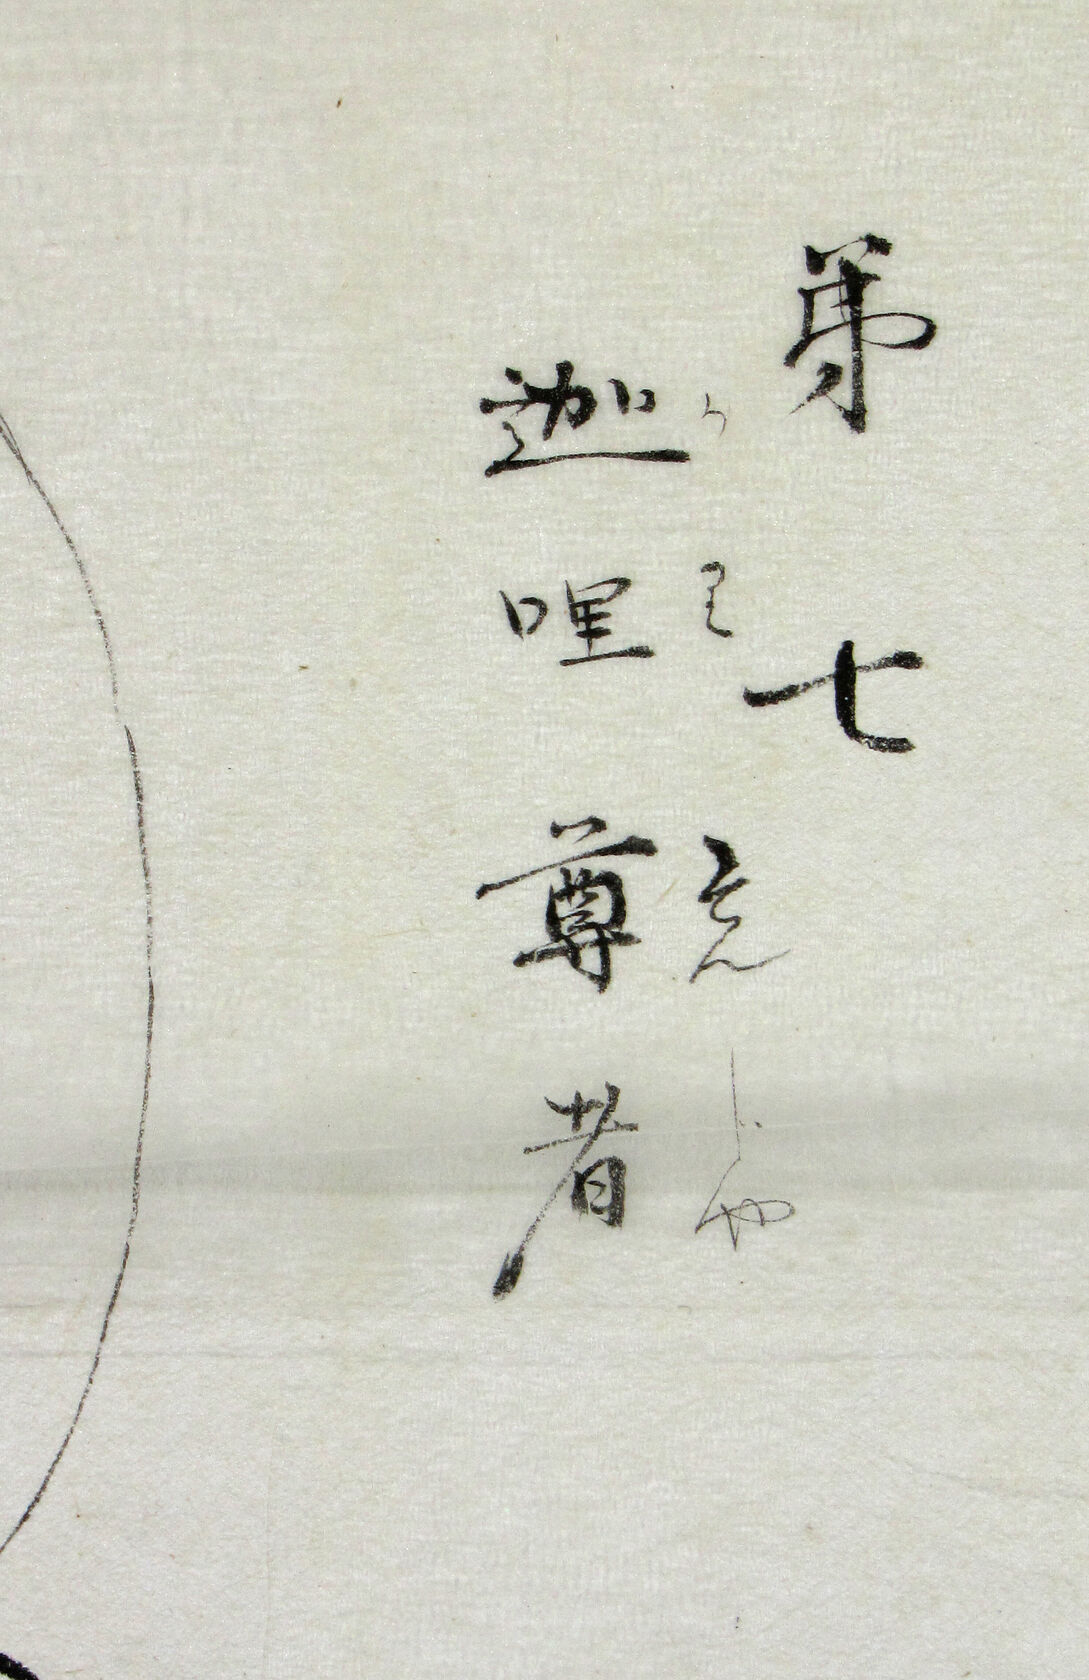 第七
かりそんじや
迦哩尊者